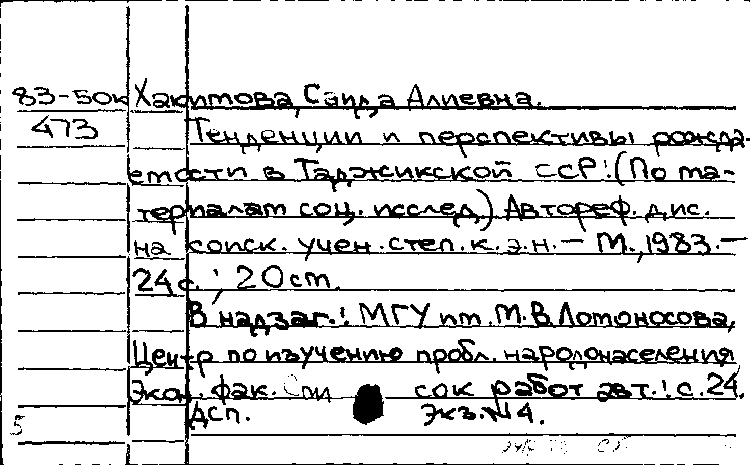 83-50к Хакимова, Саида Алиевна.
473 Тенденции и перспективы рожда-
емости в Таджикской ССР: (По ма-
териалам соц. исслед.) Автореф. дис.
на соиск. учен. степ. к. э. н. — М., 1983. —
24 с.; 20 см.
В надзаг.: МГУ им. М.В. Ломоносова,
Центр по изучению пробл. народонаселения
Экон. фак. Спи сок работ авт.: с. 24,
ДСП. Экз. №4.
5